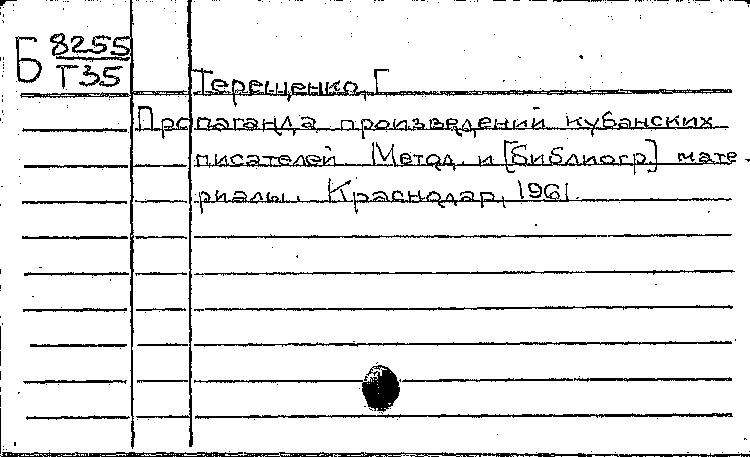 Б 8255
Т35
Терещенко, Г
Пропаганда произведений кубанских
писателей. Метод. и [библиогр.] мате-
риалы. Краснодар, 1961.